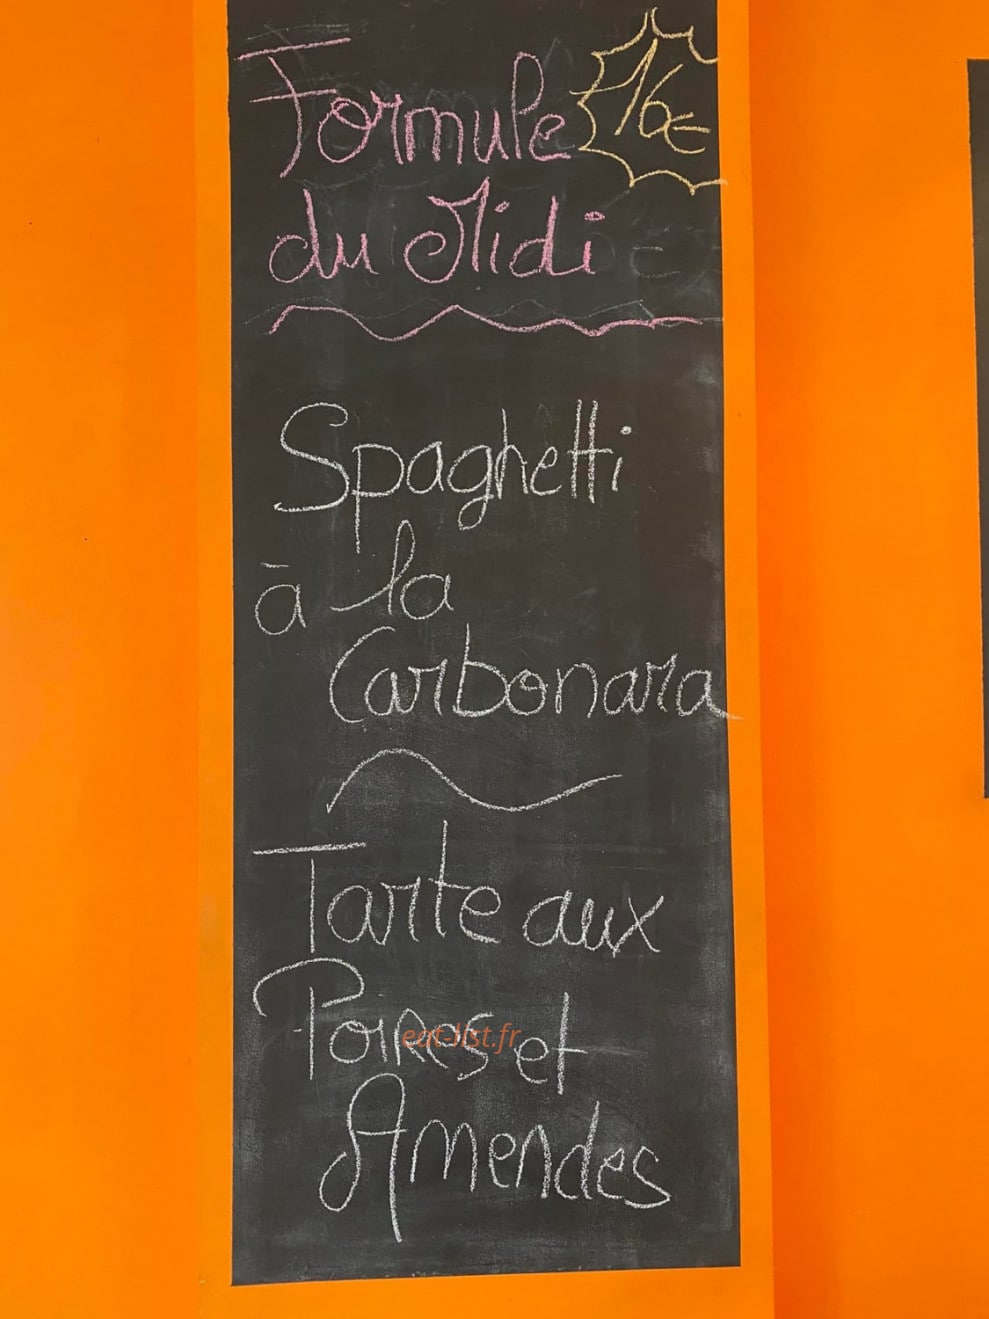 Formule
16€
du Midi
Spaghetti
à la
Carbonara
Tarte aux
Poires et
eat-list.fr
Amendes